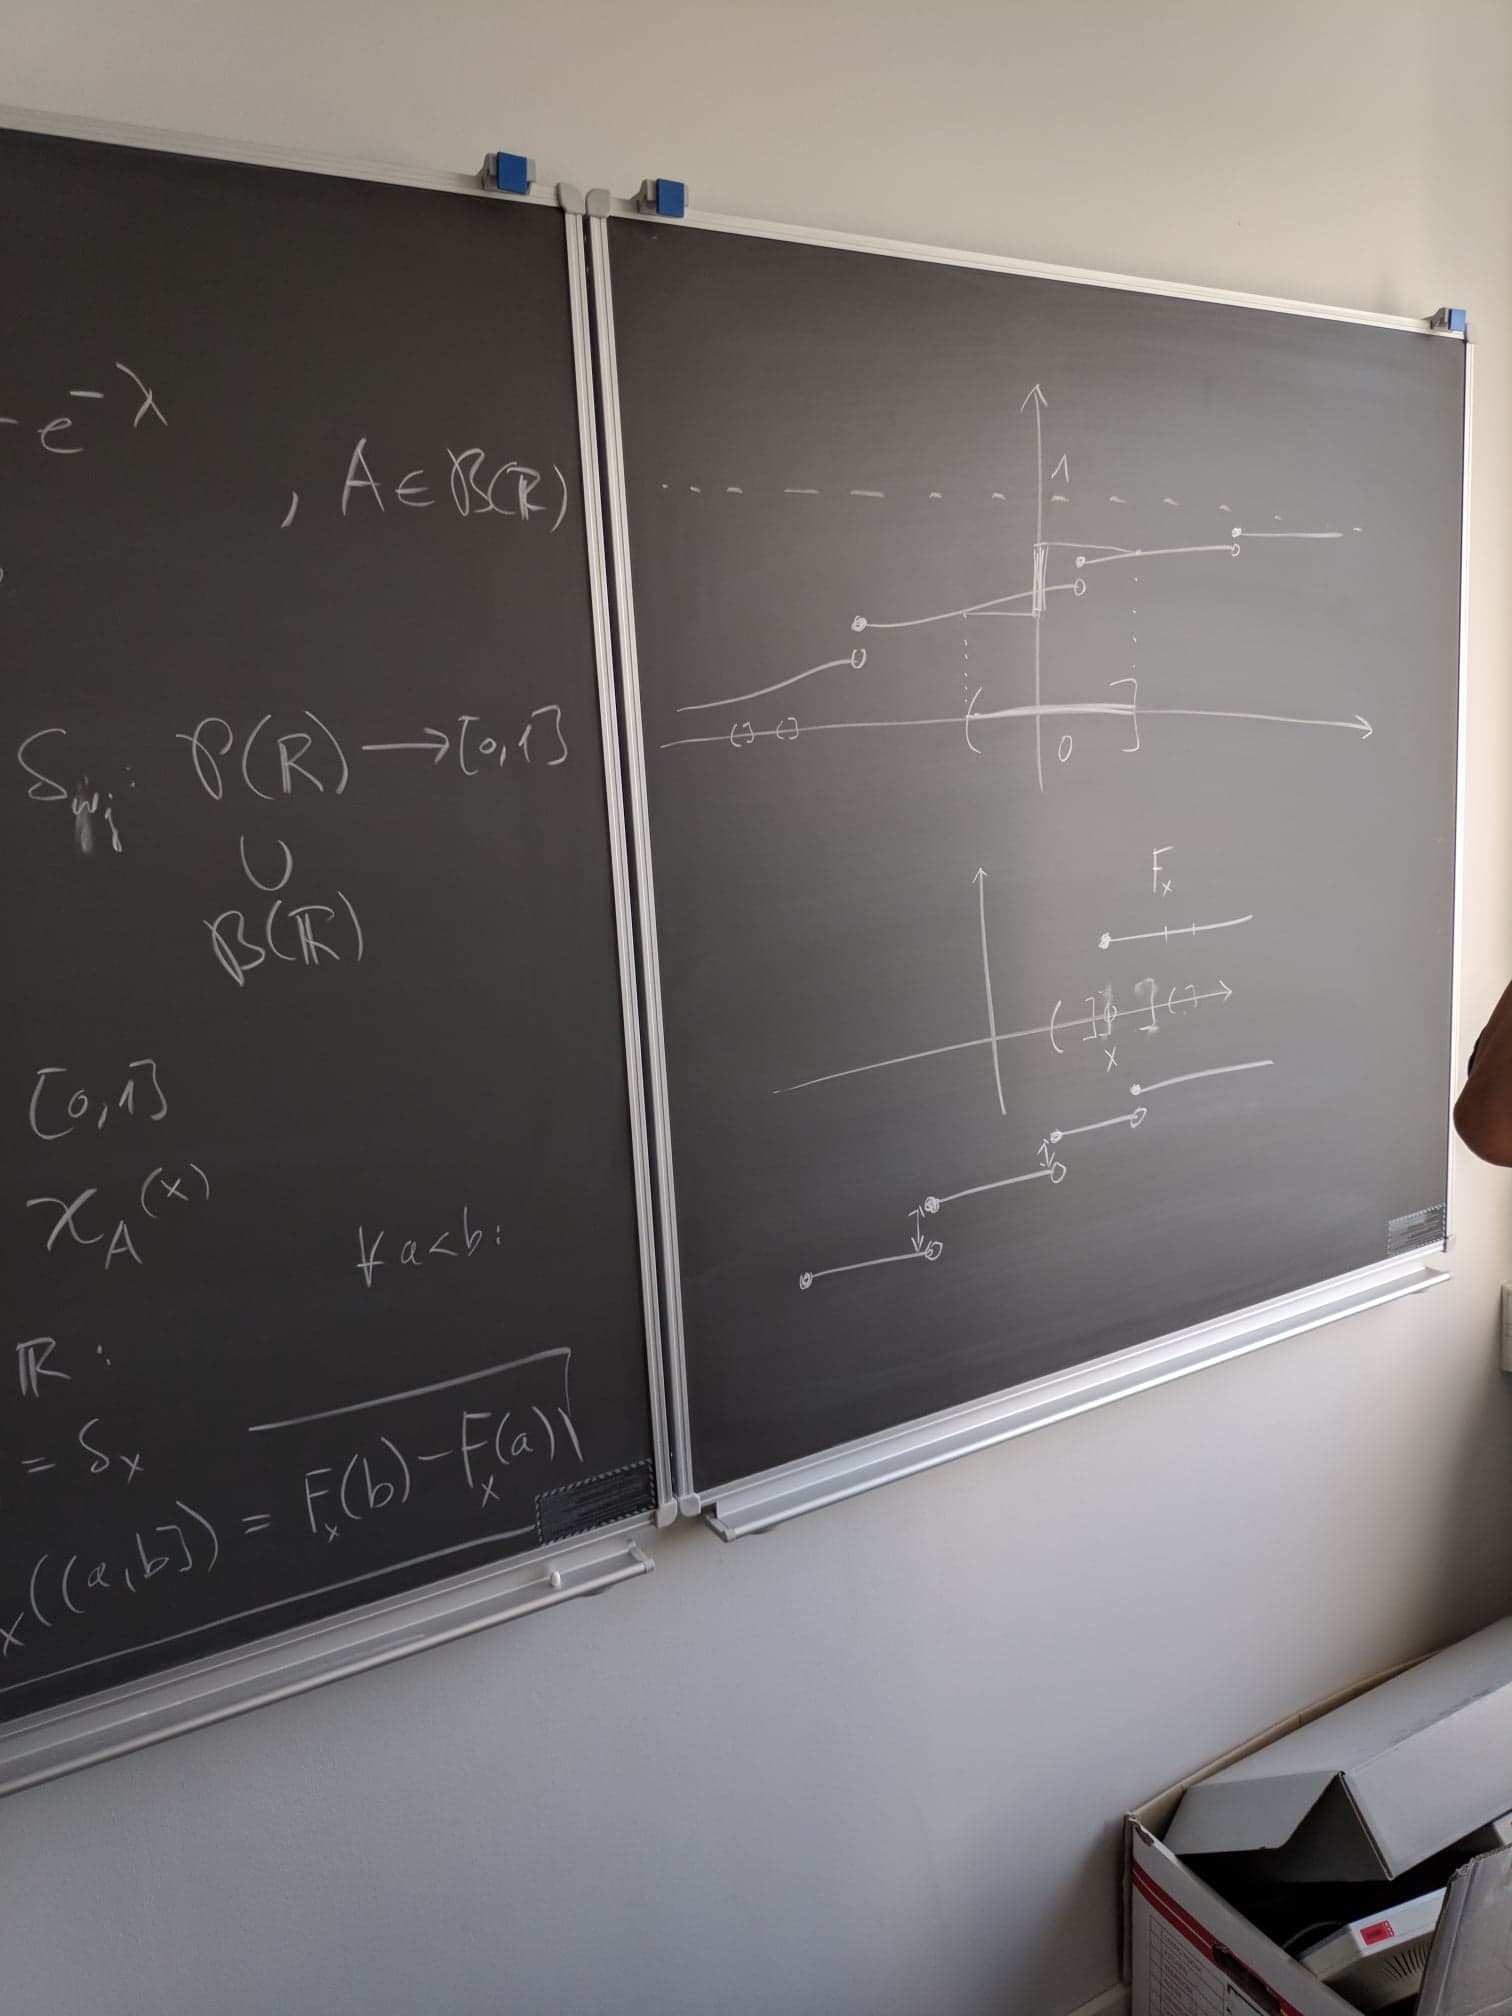 -e^{-λ}
, A ∈ 𝓑(ℝ)
δ_{y_j}: 𝒫(ℝ) → [0,1]
∪
𝓑(ℝ)
[0,1]
χ_A(x)
∀ a<b:
ℝ:
= δ_x
_x((a,b]) = F_x(b) - F_x(a)
1
( ] ( ] ( ]
0
F_x
( ]
x